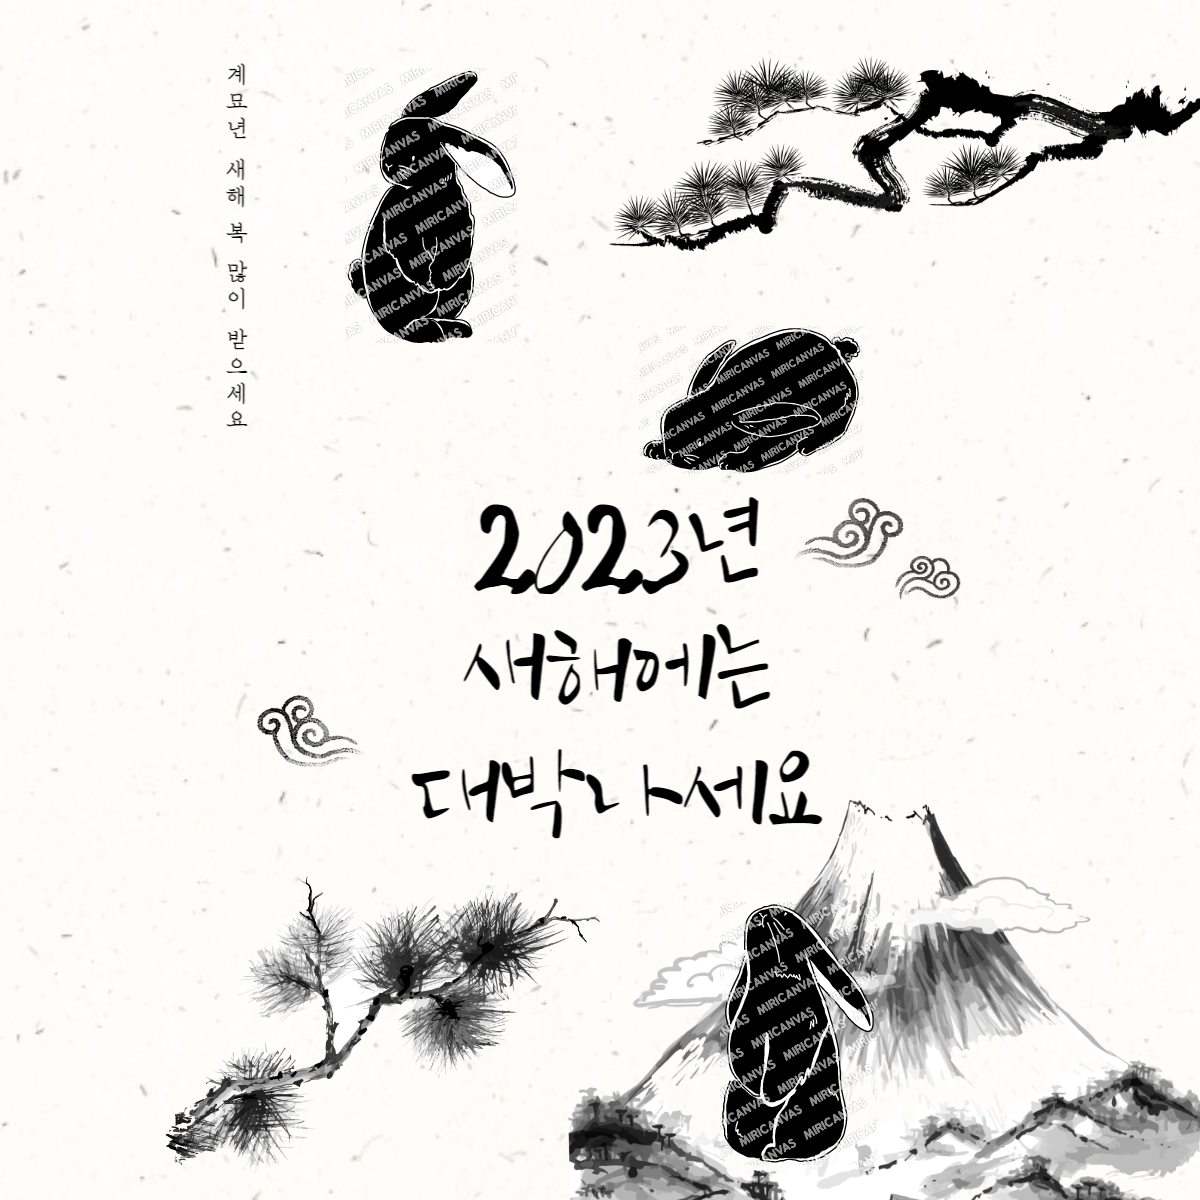 계묘년 새해 복 많이 받으세요
2023년
새해에는
대박나세요
MIRICANVAS